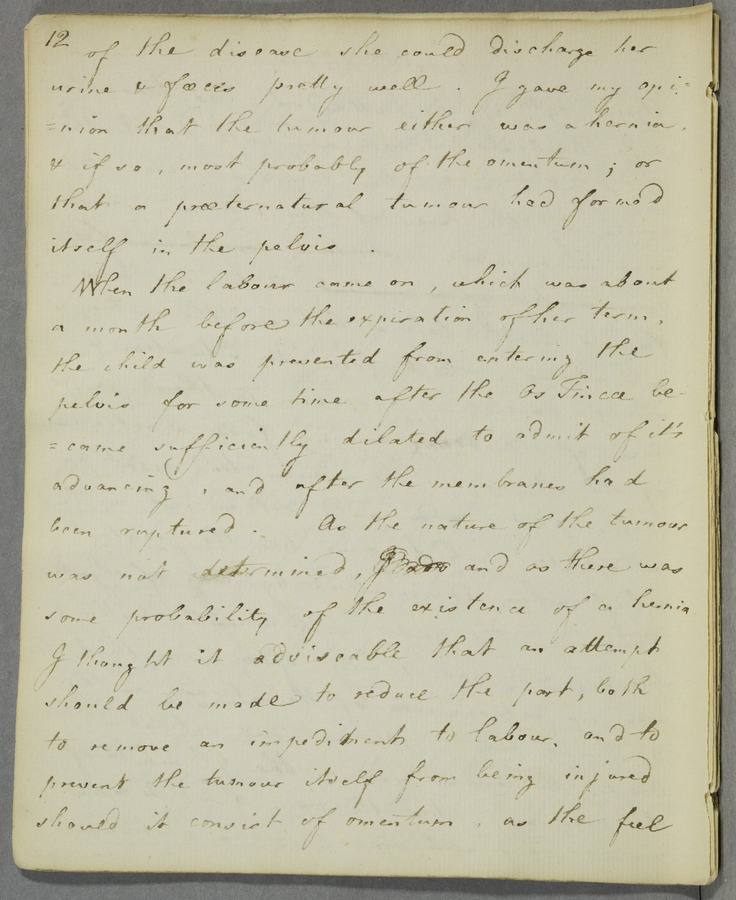 12 of the disease she could discharge her
urine & fœces pretty well. I gave my opi:
=nion that the tumour either was a hernia,
& if so, most probably of the omentum; or
that a præternatural tumour had formed
itself in the pelvis.
When the labour came on, which was about
a month before the expiration of her term,
the child was prevented from entering the
pelvis for some time after the Os Tincæ be-
=came sufficiently dilated to admit of it's
advancing, and after the membranes had
been ruptured. As the nature of the tumour
was not determined, and as there was
some probability of the existence of a hernia
I thought it adviseable that an attempt
should be made to reduce the part, both
to remove an impediment to labour, and to
prevent the tumour itself from being injured
should it consist of omentum, as the feel